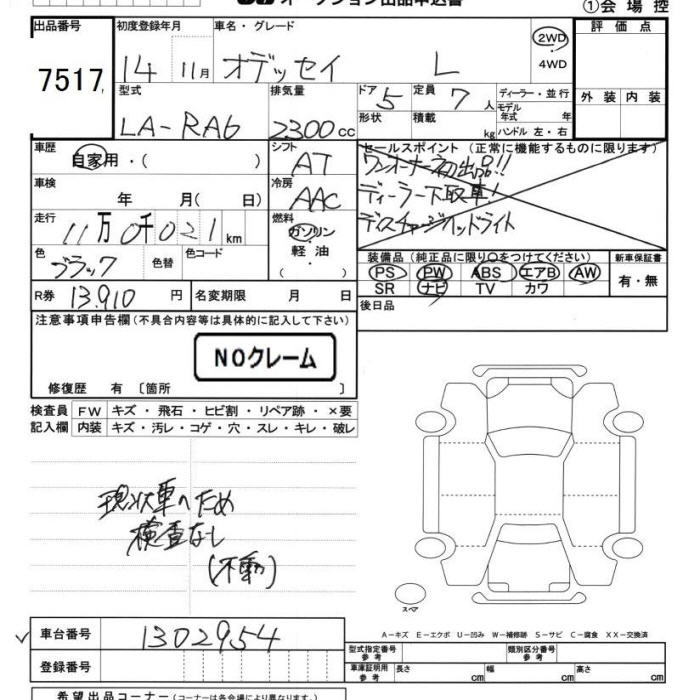 オークション出品申込書
①会場控
出品番号 初度登録年月 車名・グレード 評価点
7517 14 11月 オデッセイ L 2WD・4WD
型式 排気量 ドア 定員 ディーラー・並行 外装 内装
LA-RA6 2300cc 5 7人 モデル年式 年
形状 積載 kg ハンドル 左・右
車歴 シフト セールスポイント(正常に機能するものに限ります)
自家用・( ) AT ワンオーナー初出品!!
車検 冷房 ディーラー下取車!
年 月( 日) AAC ディスチャージヘッドライト
走行 燃料
11万0千021km ガソリン・軽油・( )
色 色替 色コード 装備品(純正品に限り○をつけてください) 新車保証書
ブラック PS PW ABS エアB AW 有・無
R券 13.910円 名変期限 月 日 SR ナビ TV カワ
後日品
注意事項申告欄(不具合内容等は具体的に記入して下さい)
NOクレーム
修復歴 有〔箇所 〕
検査員 FW キズ・飛石・ヒビ割・リペア跡・×要
記入欄 内装 キズ・汚レ・コゲ・穴・スレ・キレ・破レ
現状車のため
検査なし
(不動)
スペア
A-キズ E-エクボ U-凹み W-補修跡 S-サビ C-腐食 XX-交換済
車台番号 1302954
型式指定番号 参考 類別区分番号 参考
登録番号 車庫証明用 参考 長さ cm 幅 cm 高さ cm
希望出品コーナー(コーナーは各会場により異なります。)